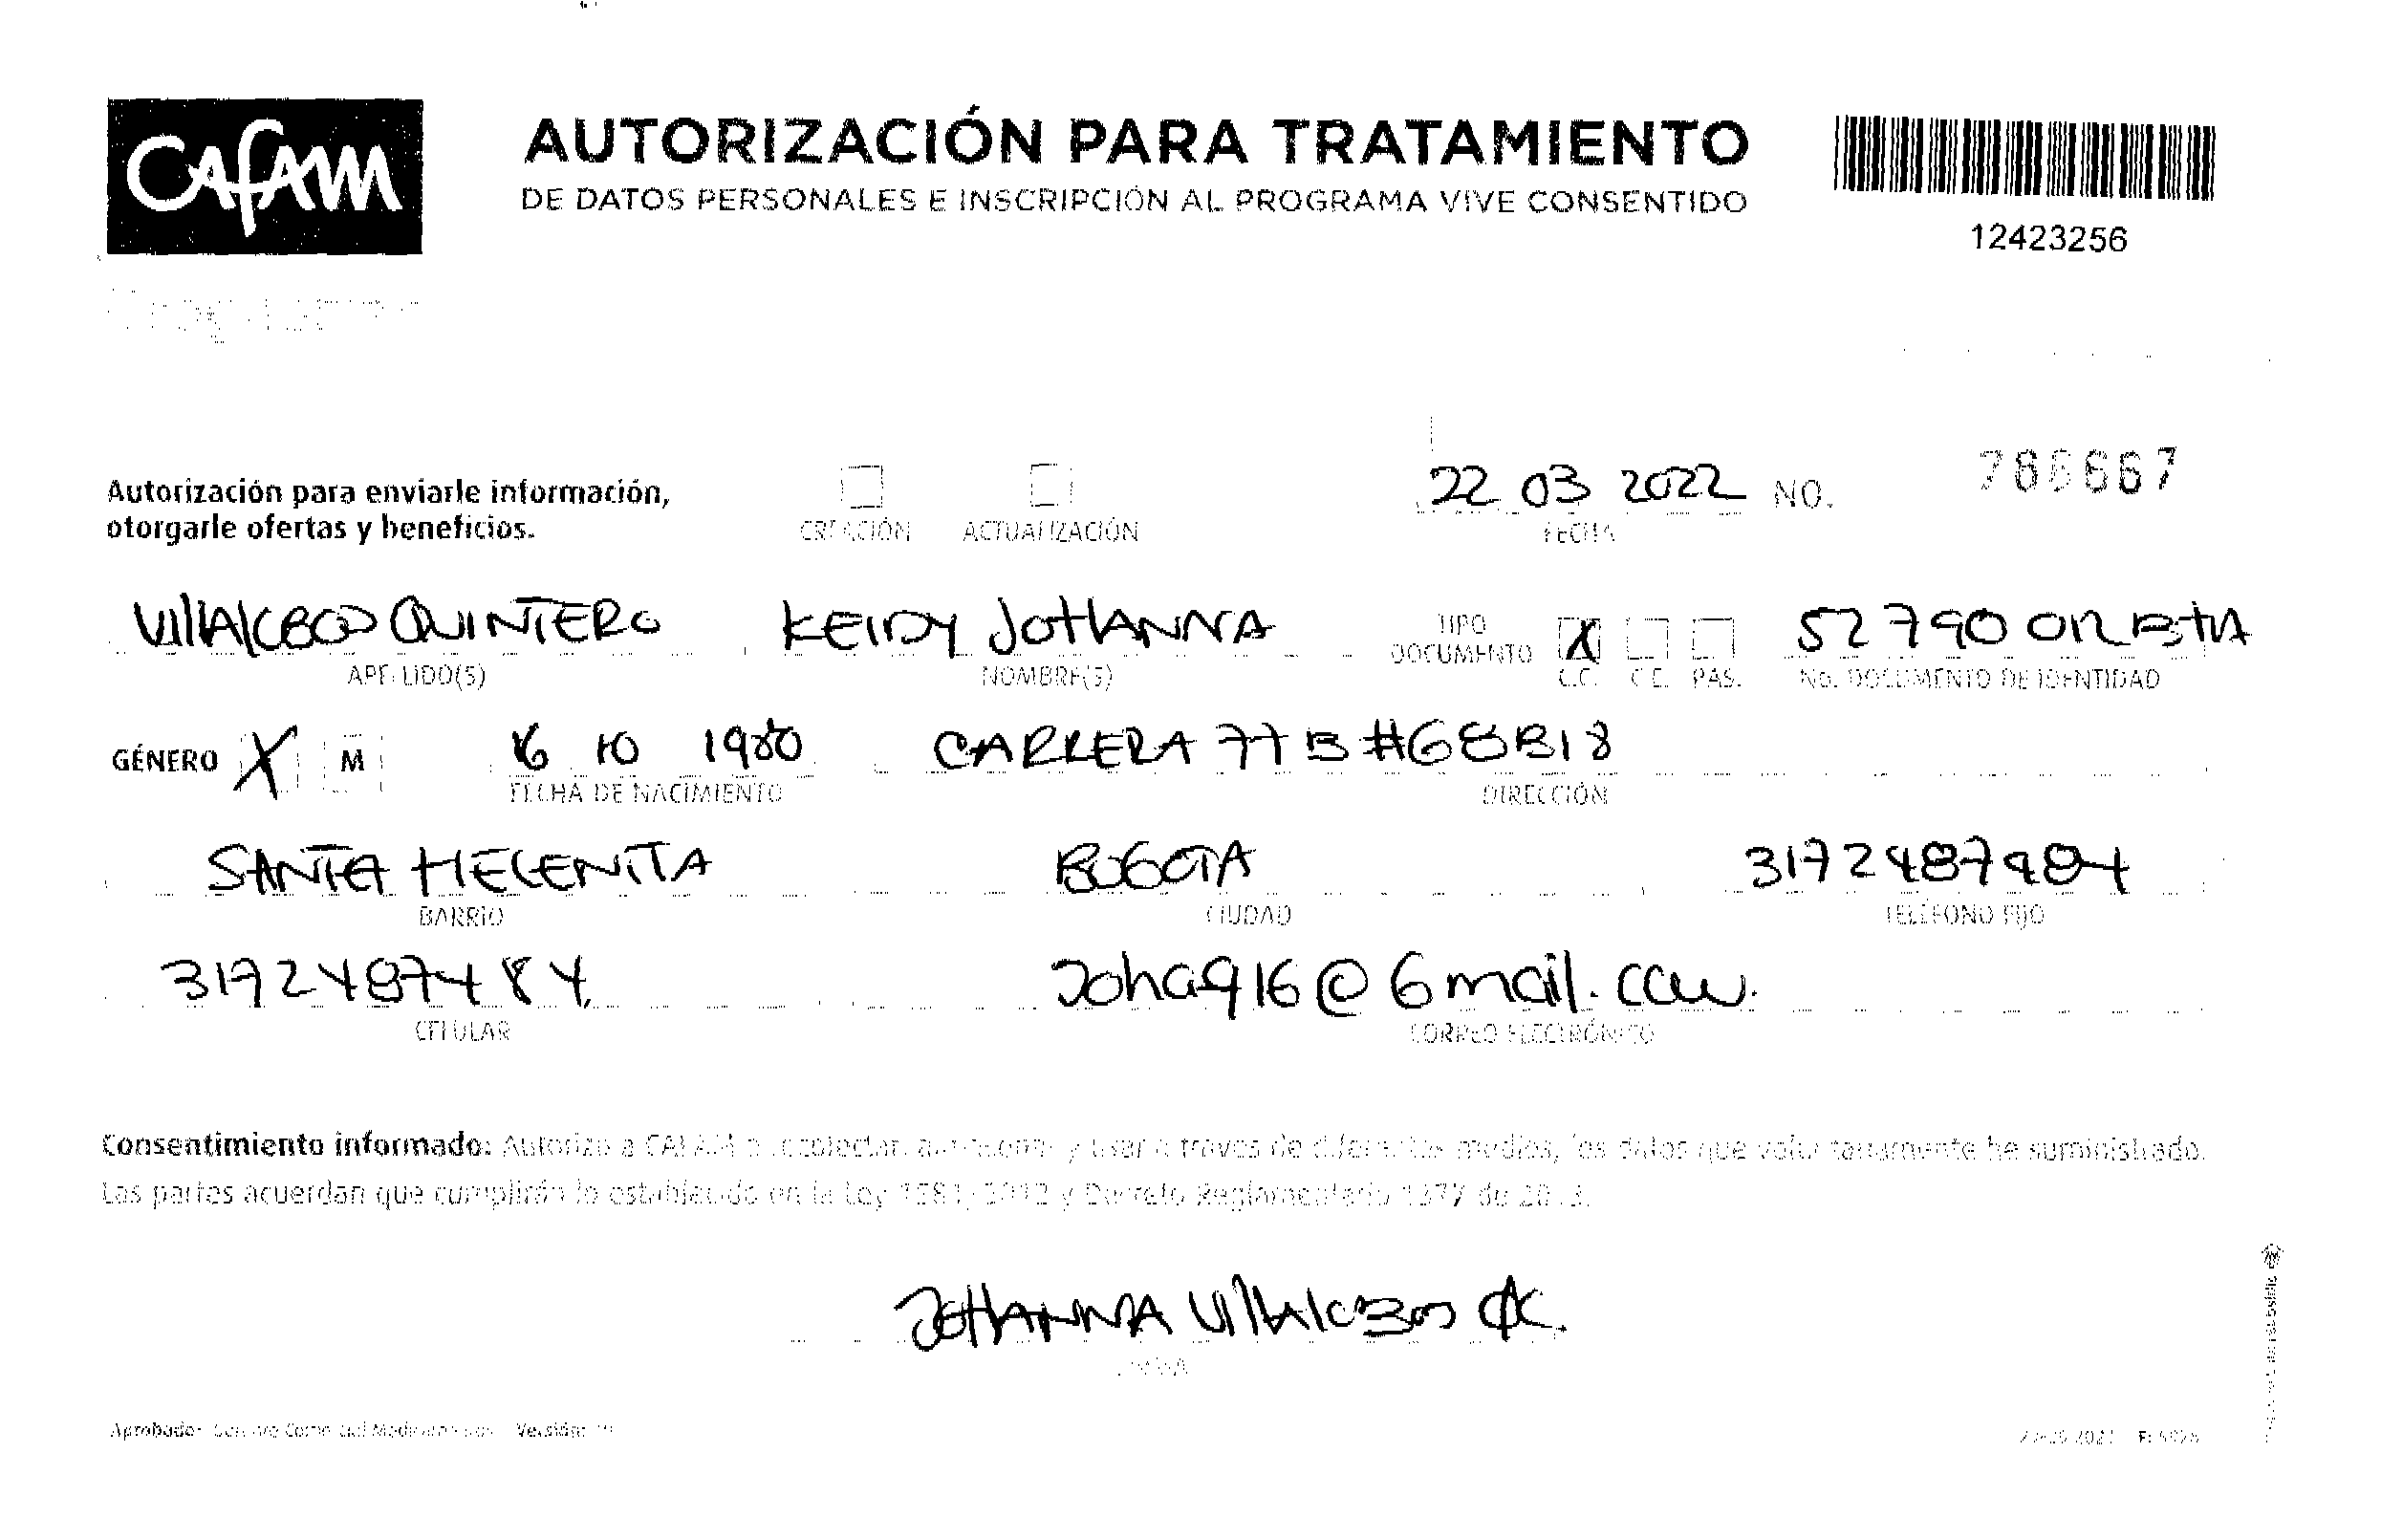 Cafam
AUTORIZACIÓN PARA TRATAMIENTO
DE DATOS PERSONALES E INSCRIPCIÓN AL PROGRAMA VIVE CONSENTIDO
12423256
Autorización para enviarle información,
otorgarle ofertas y beneficios.
CREACIÓN ACTUALIZACIÓN
22 03 2022 NO. 786667
FECHA
VIllAlOBOS QUINTERO KEIDY JOHANNA TIPO DOCUMENTO X 52790012 BTA
APELLIDO(S) NOMBRE(S) C.C. C.E. PAS. No. DOCUMENTO DE IDENTIDAD
GÉNERO X M 16 10 1980 CARRERA 77B #68B18
FECHA DE NACIMIENTO DIRECCIÓN
SANTA HELENITA BOGOTA 3172487484
BARRIO CIUDAD TELÉFONO FIJO
3172487484 Johaq16@Gmail.com.
CELULAR CORREO ELECTRÓNICO
Consentimiento informado: Autorizo a CAFAM a recolectar, almacenar y usar a través de diferentes medios, los datos que voluntariamente he suministrado.
Las partes acuerdan que cumplirán lo establecido en la Ley 1581/2012 y Decreto Reglamentario 1377 de 2013.
JOHANNA VIllAlOBOS Q.
FIRMA
Aprobado: Versión: